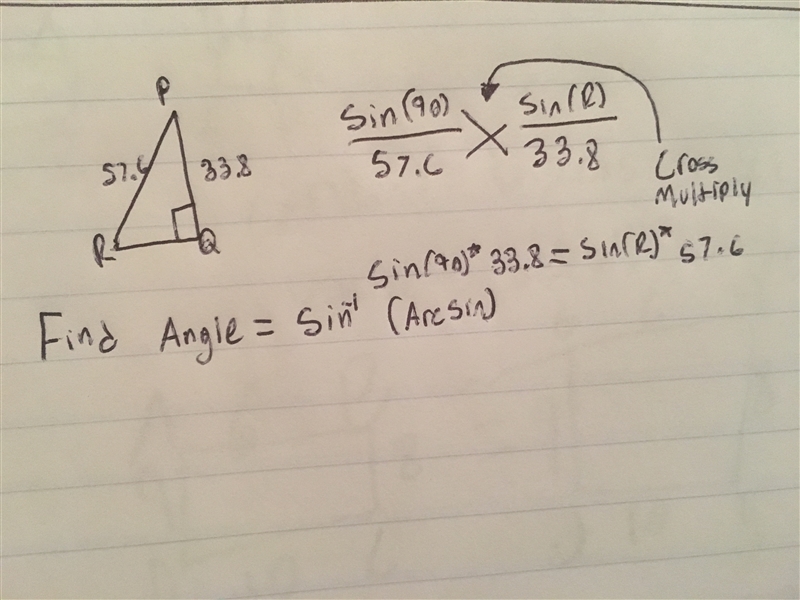 P
57.6 33.8
R Q
Sin(90) Sin(R)
57.6 33.8
Cross
Multiply
Sin(90)* 33.8 = Sin(R)* 57.6
Find Angle = Sin⁻¹ (Arcsin)